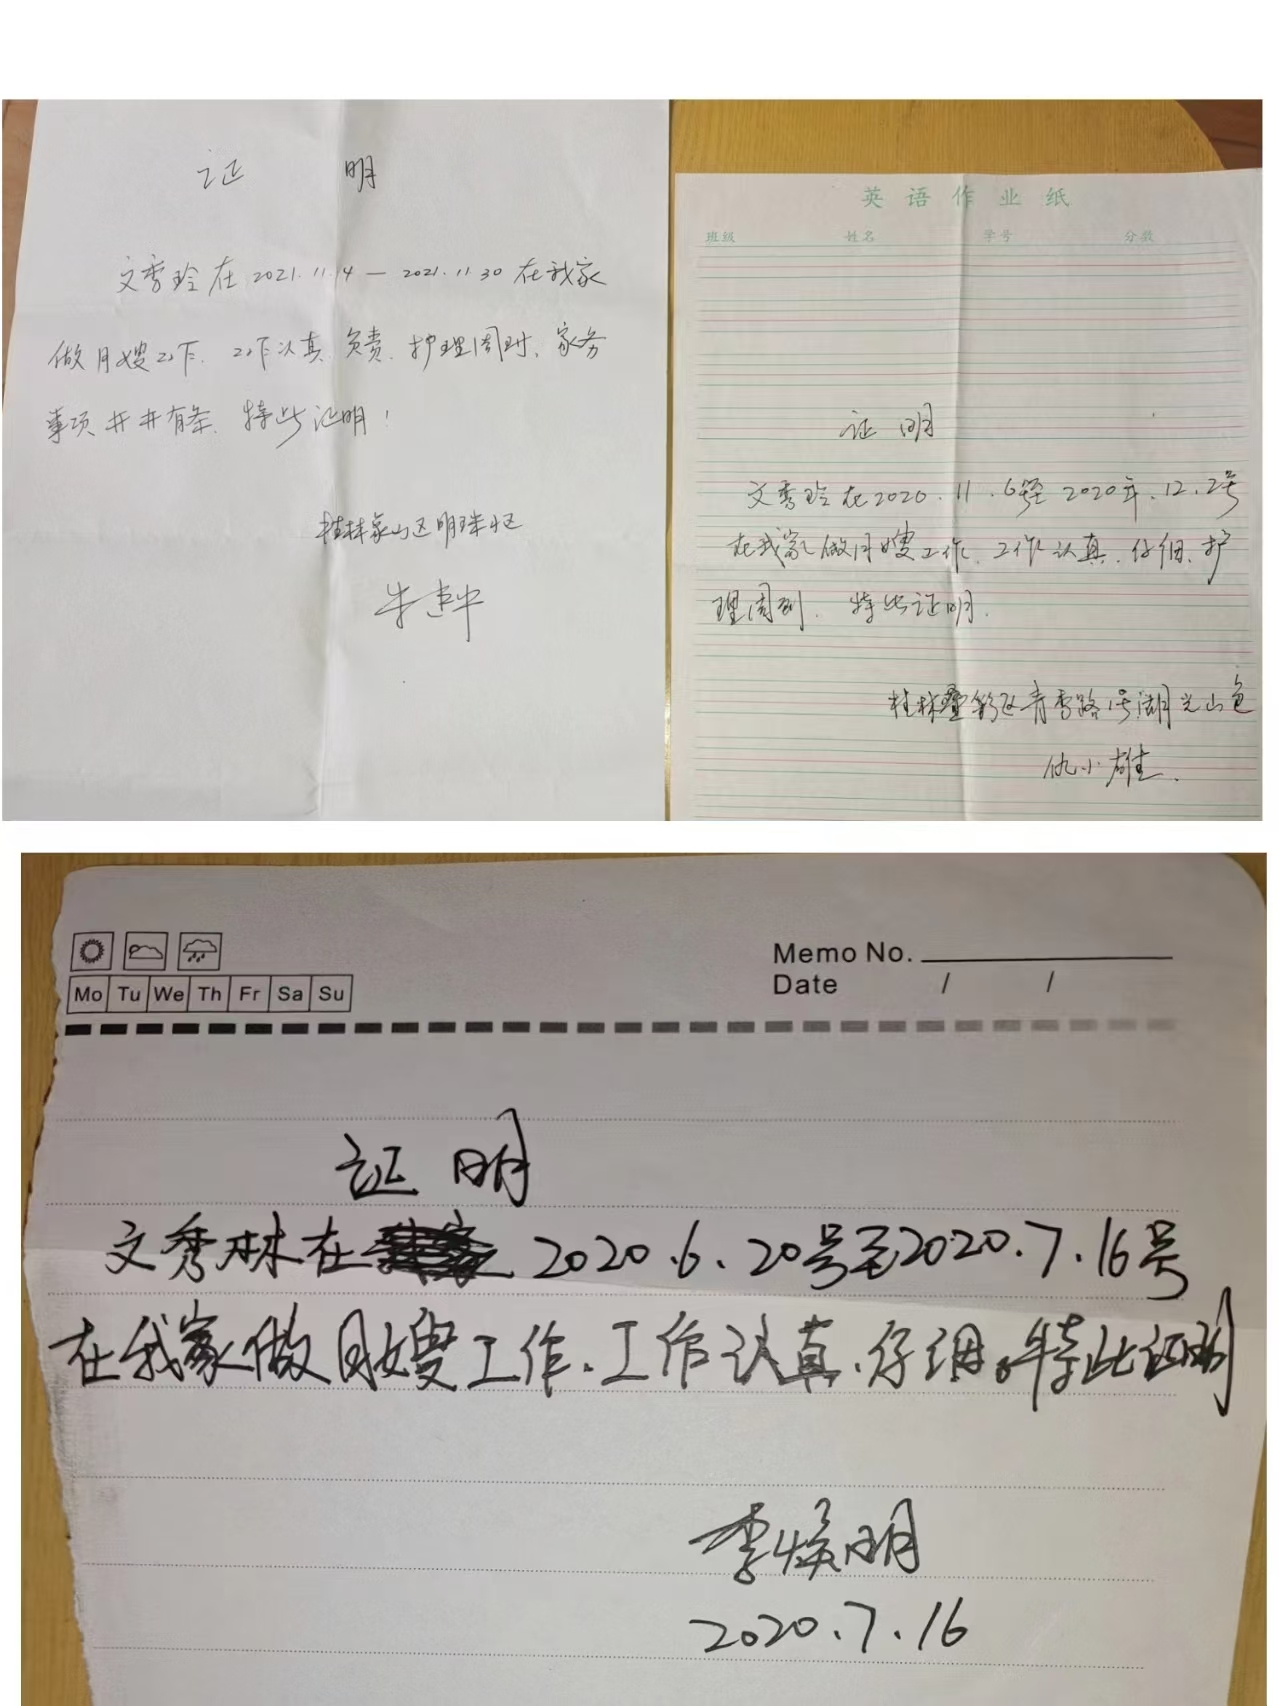 证 明
文秀玲在2021.11.14—2021.11.30在我家
做月嫂工作.工作认真.负责.护理周到、家务
事项井井有条.特此证明!
桂林象山区明珠小区
英语作业纸
班级 姓名 学号 分数
证 明
文秀玲在2020.11.6号至2020年.12.2号
在我家做月嫂工作.工作认真.仔细.护
理周到.特此证明.
桂林叠彩区青秀路1号湖光山色
仇小雄.
Memo No.
Mo Tu We Th Fr Sa Su
Date / /
证 明
文秀林在 2020.6.20号至2020.7.16号
在我家做月嫂工作.工作认真.仔细。特此证明
李焕明
2020.7.16